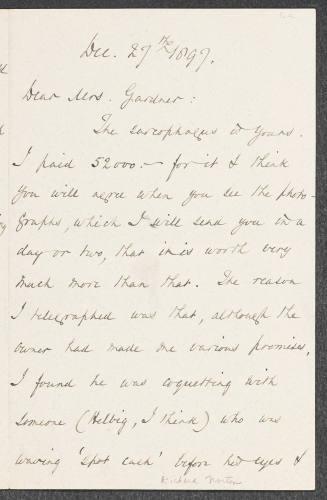 Dec. 27th 1897.
Dear Mrs. Gardner:
The sarcophagus is yours.
I paid 52000:— for it & think
you will agree when you see the photo-
graphs, which I will send you in a
day or two, that it is worth very
much more than that. The reason
I telegraphed was that, although the
owner had made me various promises,
I found he was coquetting with
someone (Helbig, I think) who was
waving 'spot cash' before his eyes &
Richard Norton